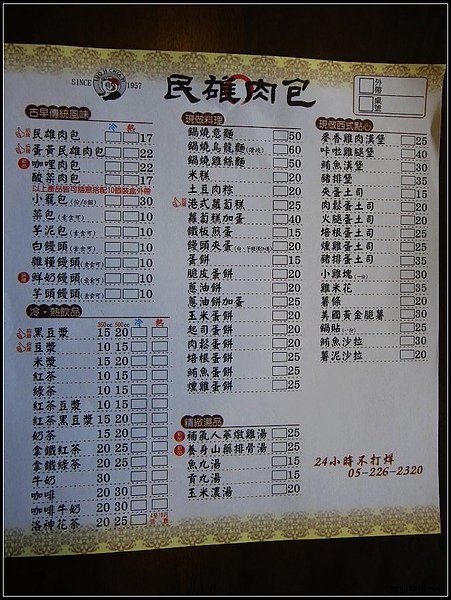 SINCE 1957
民雄肉包
外帶
桌號
古早傳統風味
冷 熱
民雄肉包 17
蛋黃民雄肉包 22
咖哩肉包 22
酸菜肉包 17
以上產品皆可隨意搭配10個裝盒外帶
小籠包(份/8個) 30
菜包(素食可) 10
芋泥包(素食可) 10
白饅頭(素食可) 10
雜糧饅頭(素食可) 10
鮮奶饅頭(素食可) 10
芋頭饅頭(素食可) 10
冷．熱飲品
360cc 500cc 冷 熱
黑豆漿 15 20
豆漿 10 15
米漿 15 20
紅茶 10 15
綠茶 10 15
紅茶豆漿 10 15
紅茶黑豆漿 15 20
奶茶 15 20
拿鐵紅茶 20 25
拿鐵綠茶 20 25
牛奶 30
咖啡 20 30
咖啡牛奶 20 30
洛神花茶 20 25
現做料理
鍋燒意麵 50
鍋燒烏龍麵 60
鍋燒雞絲麵 50
米糕 20
土豆肉粽 20
港式蘿蔔糕 25
蘿蔔糕加蛋 40
鐵板煎蛋 10
饅頭夾蛋 20
蛋餅 15
脆皮蛋餅 20
蔥油餅 20
蔥油餅加蛋 30
玉米蛋餅 20
起司蛋餅 20
肉鬆蛋餅 20
培根蛋餅 25
鮪魚蛋餅 25
燻雞蛋餅 25
精緻湯品
補氣人蔘燉雞湯 25
養身山藥排骨湯 25
魚丸湯 15
貢丸湯 15
玉米濃湯 20
現做西式點心
麥香雞肉漢堡 25
咔啦雞腿堡 40
鮪魚漢堡 30
豬排堡 25
夾蛋土司 15
肉鬆蛋土司 20
火腿蛋土司 20
培根蛋土司 25
燻雞蛋土司 25
豬排蛋土司 35
小雞塊(一份) 30
雞米花 35
薯條 20
美國黃金脆薯 30
鍋貼(一份) 25
鮪魚沙拉 30
薯泥沙拉 20
24小時不打烊
05-226-2320